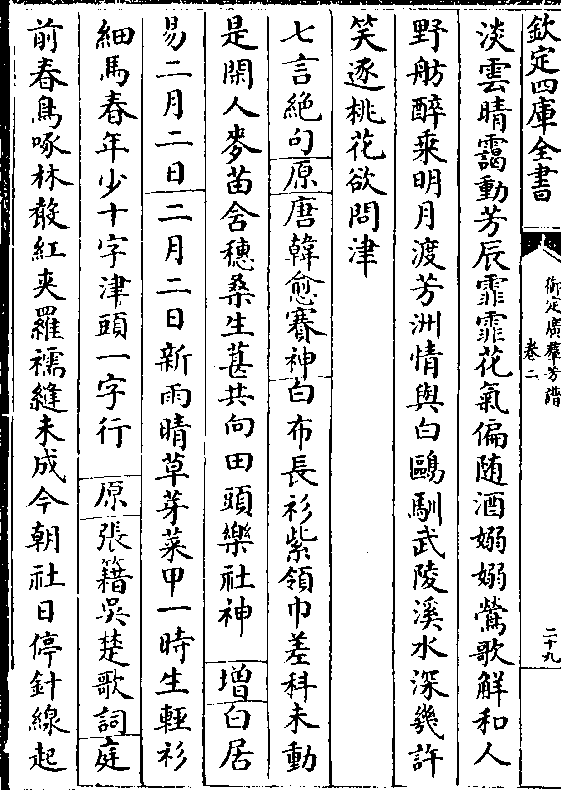 欽定四庫全書
御定廣群芳譜
卷二
二十九
淡雲晴靄動芳辰霏霏花氣偏随酒嫋嫋鶯歌解和人
野舫醉乘明月渡芳洲情與白鷗馴武陵溪水深幾許
笑逐桃花欲問津
七言絶句原唐韓愈賽神白布長衫紫領巾差科未動
是閑人麥苗含穗桑生葚共向田頭樂社神 增白居
易二月二日二月二日新雨晴草芽菜甲一時生輕衫
細馬春年少十字津頭一字行 原張籍吳楚歌詞庭
前春鳥啄林散紅夾羅襦縫未成今朝社日停針線起